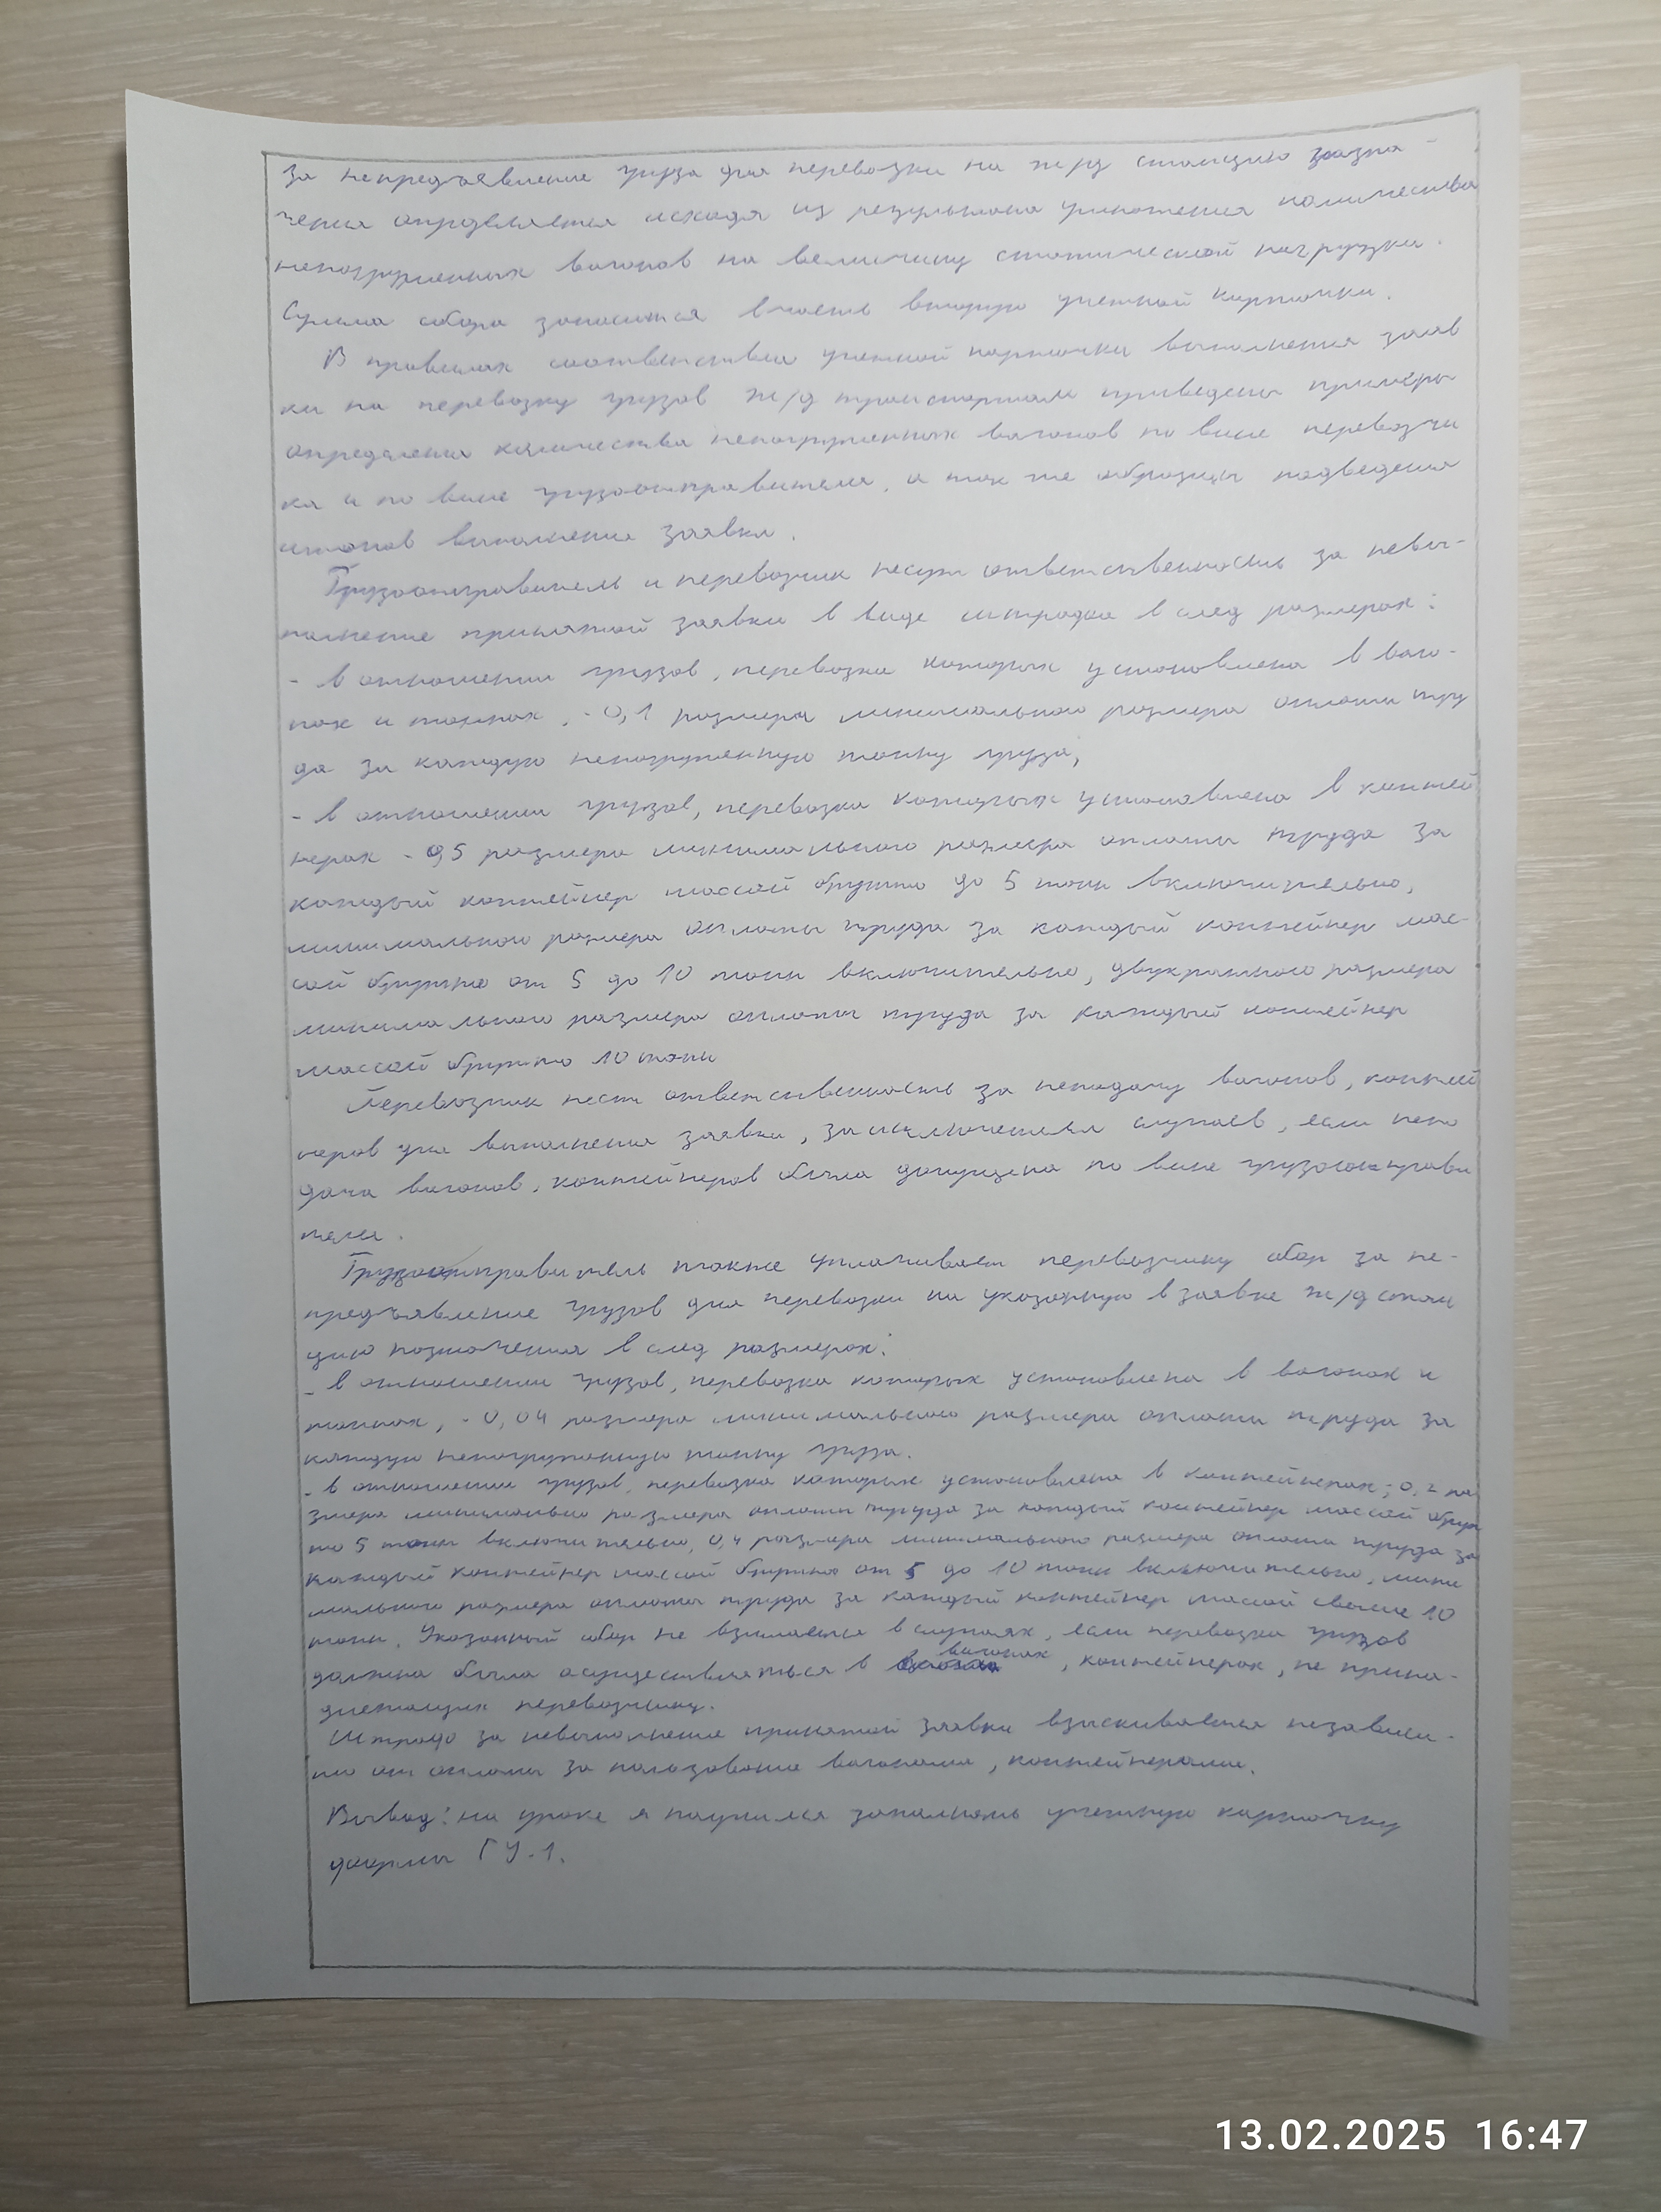 За непредъявление груза для перевозки на ж/д станцию назна-
чения определяется исходя из результата умножения количества
непогруженных вагонов на величину статической нагрузки.
Сумма сбора заносится в часть вторую учетной карточки.
В правилах учетной карточки выполнения заяв
ки на перевозку грузов ж/д транспортом приведены примеры
определения количества непогруженных вагонов по вине перевозчи
ка и по вине грузоотправителя, а так же образцы подведения
итогов выполнения заявки.
Грузоотправитель и перевозчик несут ответственность за невы-
полнение принятой заявки в виде штрафа в след размерах:
- в отношении грузов, перевозка которых установлена в ваго-
нах и тоннах, - 0,1 размера минимального размера оплаты тру
да за каждую непогруженную тонну груза;
- в отношении грузов, перевозка которых установлена в контей
нерах - 0,5 размера минимального размера оплаты труда за
каждый контейнер массой брутто до 5 тонн включительно,
минимального размера оплаты труда за каждый контейнер мас-
сой брутто от 5 до 10 тонн включительно, двукратного размера
минимального размера оплаты труда за каждый контейнер
массой брутто 10 тонн
Перевозчик несет ответственность за неподачу вагонов, контей
неров для выполнения заявки, за исключением случаев, если непо
дача вагонов, контейнеров была допущена по вине грузоотправи
теля.
Грузоотправитель также уплачивает перевозчику сбор за не-
предъявление грузов для перевозки на указанную в заявке ж/д стан
цию назначения в след размерах:
- в отношении грузов, перевозка которых установлена в вагонах и
тоннах, - 0,04 размера минимального размера оплаты труда за
каждую непогруженную тонну груза.
- в отношении грузов, перевозка которых установлена в контейнерах; 0,2 ра
змера минимально размера оплаты труда за каждый контейнер массой брут
то 5 тонн включительно, 0,4 размера минимального размера оплаты труда за
каждый контейнер массой брутто от 5 до 10 тонн включительно, мини
мального размера оплаты труда за каждый контейнер массой свыше 10
тонн. Указанный сбор не взимается в случаях, если перевозка грузов
должна была осуществляться в вагонах, контейнерах, не прина-
длежащих перевозчику.
Штраф за невыполнение принятой заявки взыскивается независи-
мо от оплаты за пользование вагонами, контейнерами.
Вывод: на уроке я научился заполнять учетную карточку
формы ГУ-1.
13.02.2025 16:47